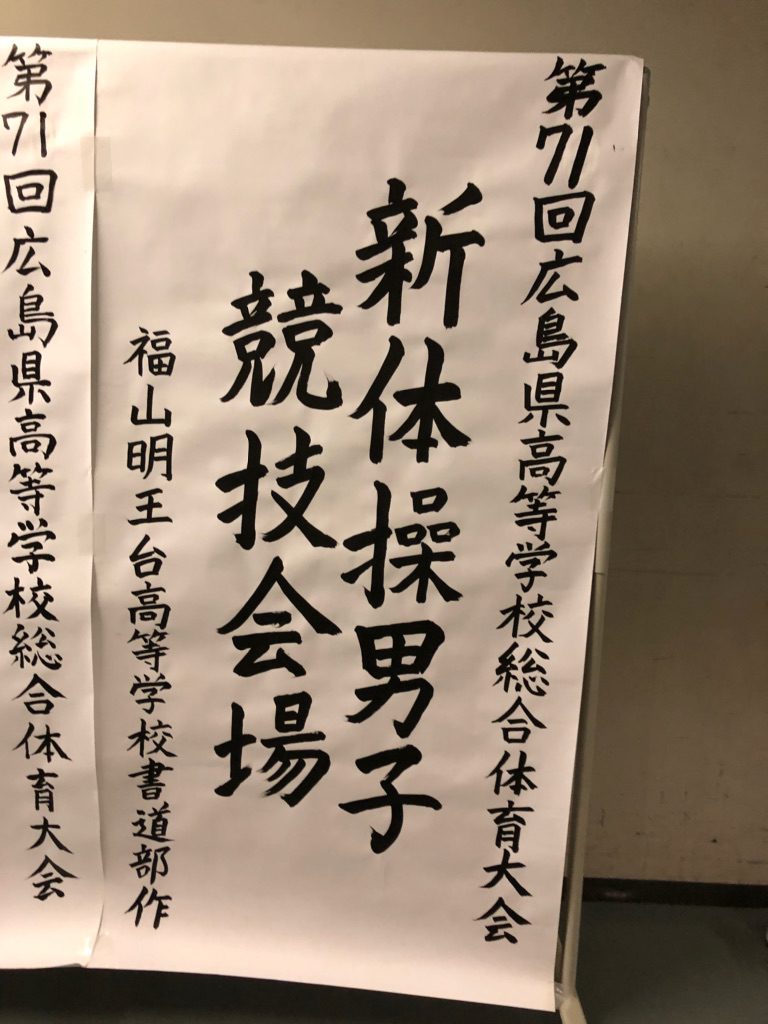 第71回広島県高等学校総合体育大会
新体操男子
競技会場
福山明王台高等学校書道部作
第71回広島県高等学校総合体育大会